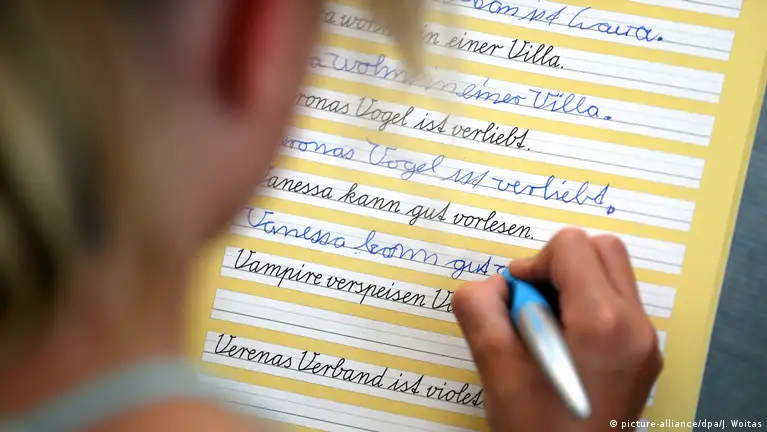 ist
in einer Villa.
in einer Villa.
Vogel ist verliebt.
Vogel ist verliebt.
Vanessa kann gut vorlesen.
Vanessa kann gut
Vampire verspeisen
Verenas Verband ist violett
© picture-alliance/dpa/J. Woitas